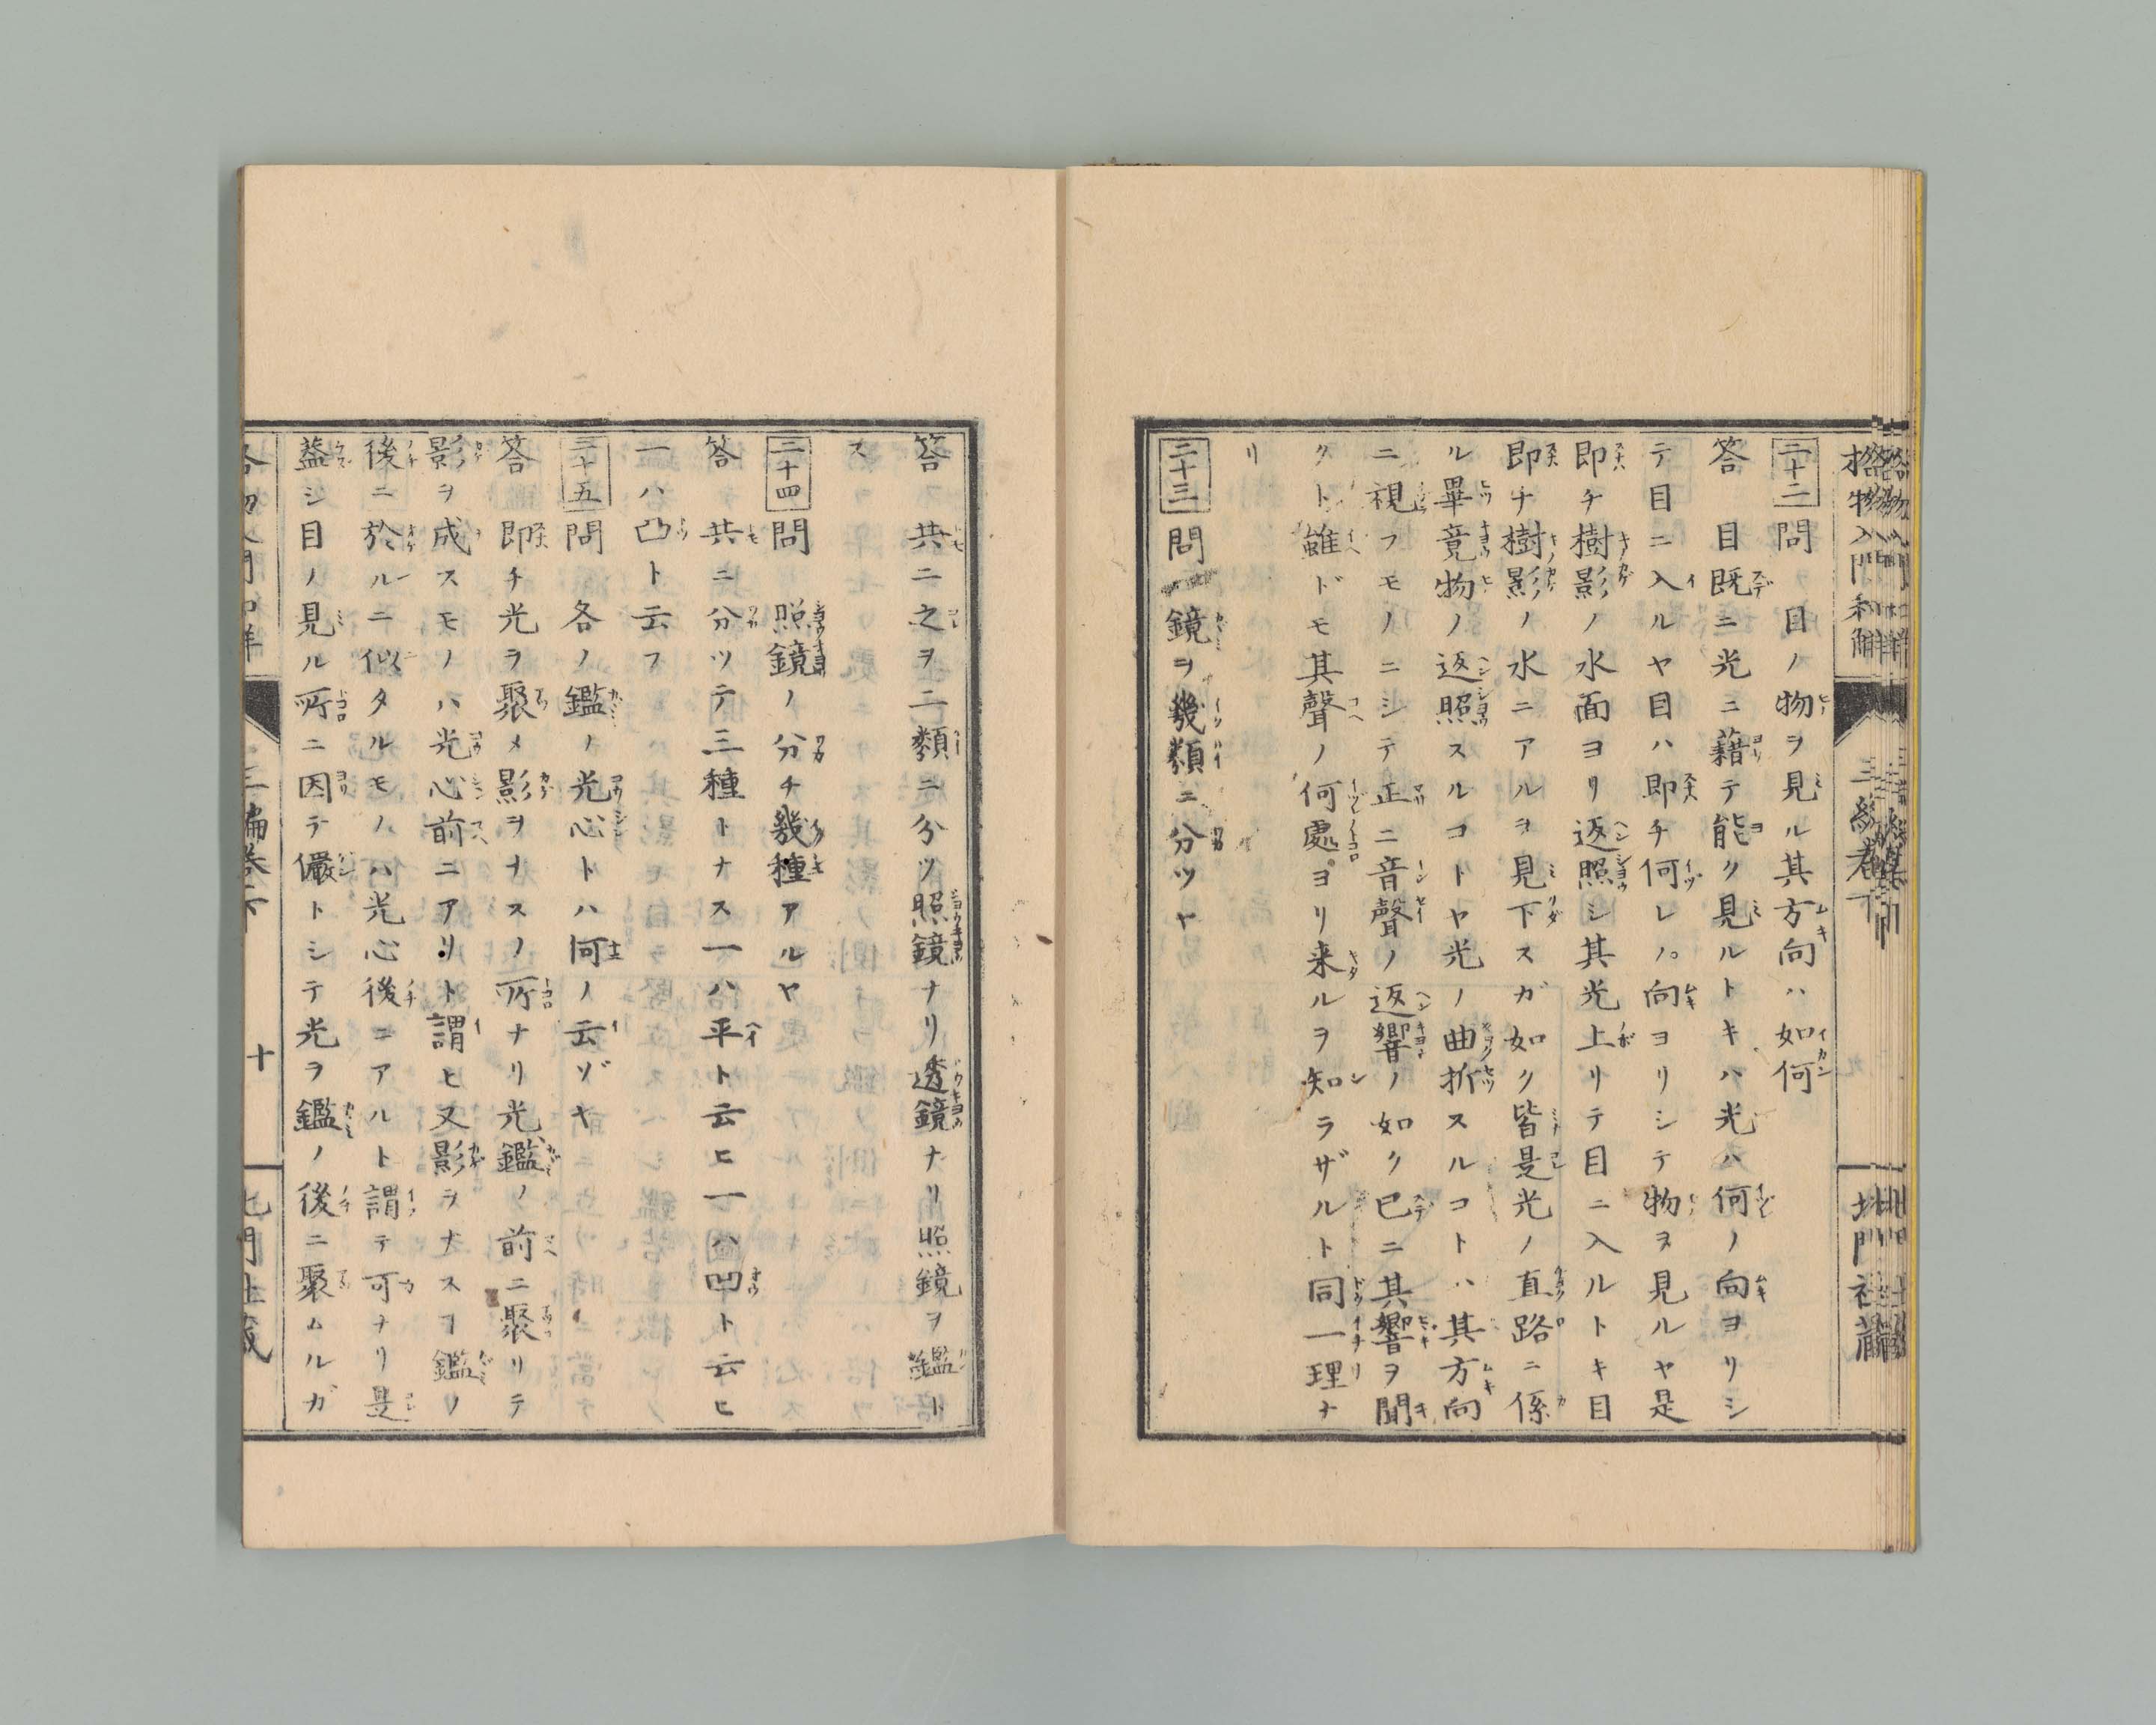 格物入門和解
三編巻下
北門社藏
二十二 問 目ノ物ヲ見ル其方向ハ如何
答 目既ニ光ニ藉テ能ク見ルトキハ光ハ何ノ向ヨリシ
テ目ニ入ルヤ目ハ即チ何レノ向ヨリシテ物ヲ見ルヤ是
即チ樹影ノ水面ヨリ返照シ其光上リテ目ニ入ルトキ目
即チ樹影ノ水ニアルヲ見下スガ如ク皆是光ノ直路ニ係
ル畢竟物ノ返照スルコトヤ光ノ曲折スルコトハ其方向
ニ視フモノニシテ正ニ音聲ノ返響ノ如ク已ニ其響ヲ聞
クト雖ドモ其聲ノ何處ヨリ来ルヲ知ラザルト同一理ナ
リ
二十三 問 鏡ヲ幾類ニ分ツヤ
答 共ニ之ヲ二類ニ分ツ照鏡ナリ透鏡ナリ照鏡ヲ鑑ト
ス
二十四 問 照鏡ノ分チ幾種アルヤ
答 共ニ分ツテ三種トナス一ハ平ト云ヒ一ハ凹ト云ヒ
一ハ凸ト云フ
二十五 問 各ノ鑑ノ光心トハ何ノ云ゾヤ
答 即チ光ヲ聚メ影ヲナスノ所ナリ光鑑ノ前ニ聚リテ
影ヲ成スモノハ光心前ニアリト謂ヒ又影ヲナスヿ鑑ノ
後ニ於ルニ似タルモノハ光心後ニアルト謂テ可ナリ是
蓋シ目ノ見ル所ニ因テ儼トシテ光ヲ鑑ノ後ニ聚ムルガ
三編巻下
十